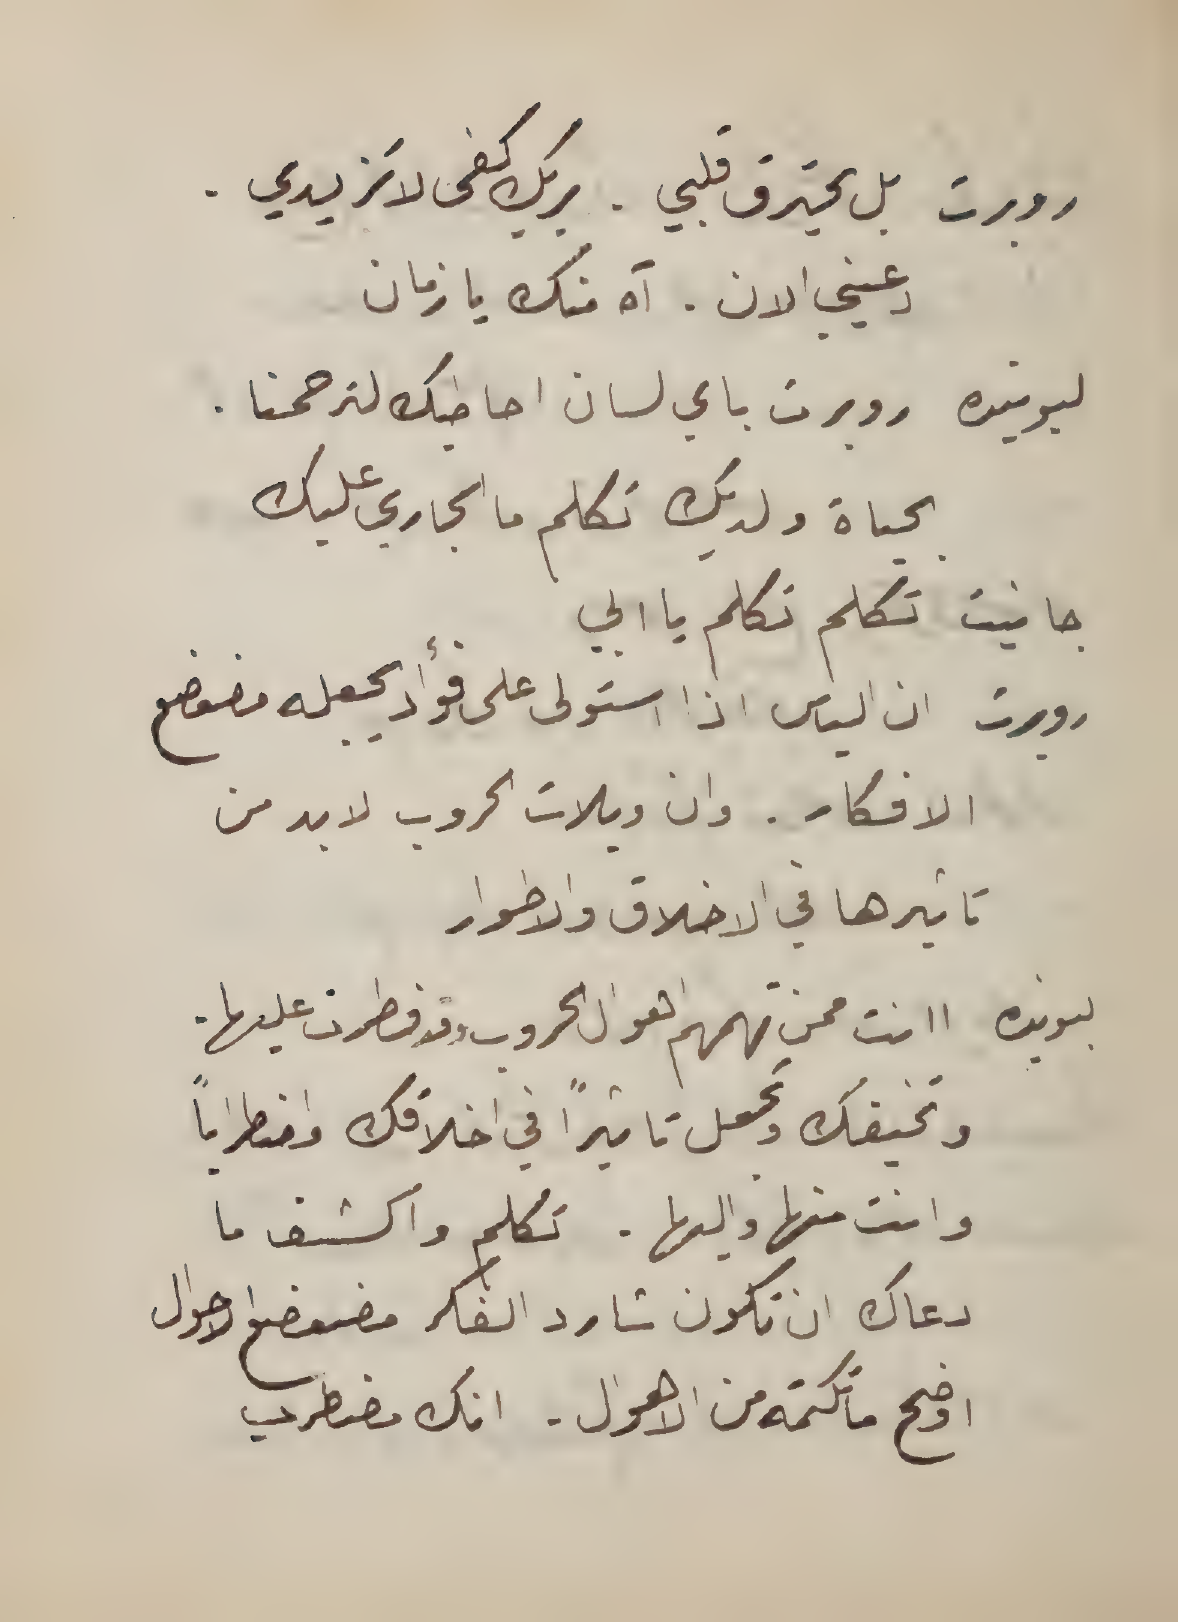 روبرت بل يحترق قلبي . بربك كفى لا تزيدي .
دعيني الان . آه منك يا زمان
ليونيده روبرت باي لسان احاطبك لترحمنا .
بحياة ولديك تكلم ما الجاري عليك
جانيت تكلم تكلم يا ابي
روبرت ان الياس اذا استولى على فؤاد يجعله مضعضع
الافكار . وان ويلات الحروب لا بد من
تاثيرها في الاخلاق والاطوار
ليونيده اانت ممن تهمهم اهوال الحروب وقد فطرت عليها .
وتخيفك وتجعل تاثيراً في اخلاقك واضطراباً
وانت منها واليها . تكلم واكشف ما
دعاك ان تكون شارد الفكر مضعضع الاحوال
اوضح ما تكتمه من الاهوال . انك مضطرب